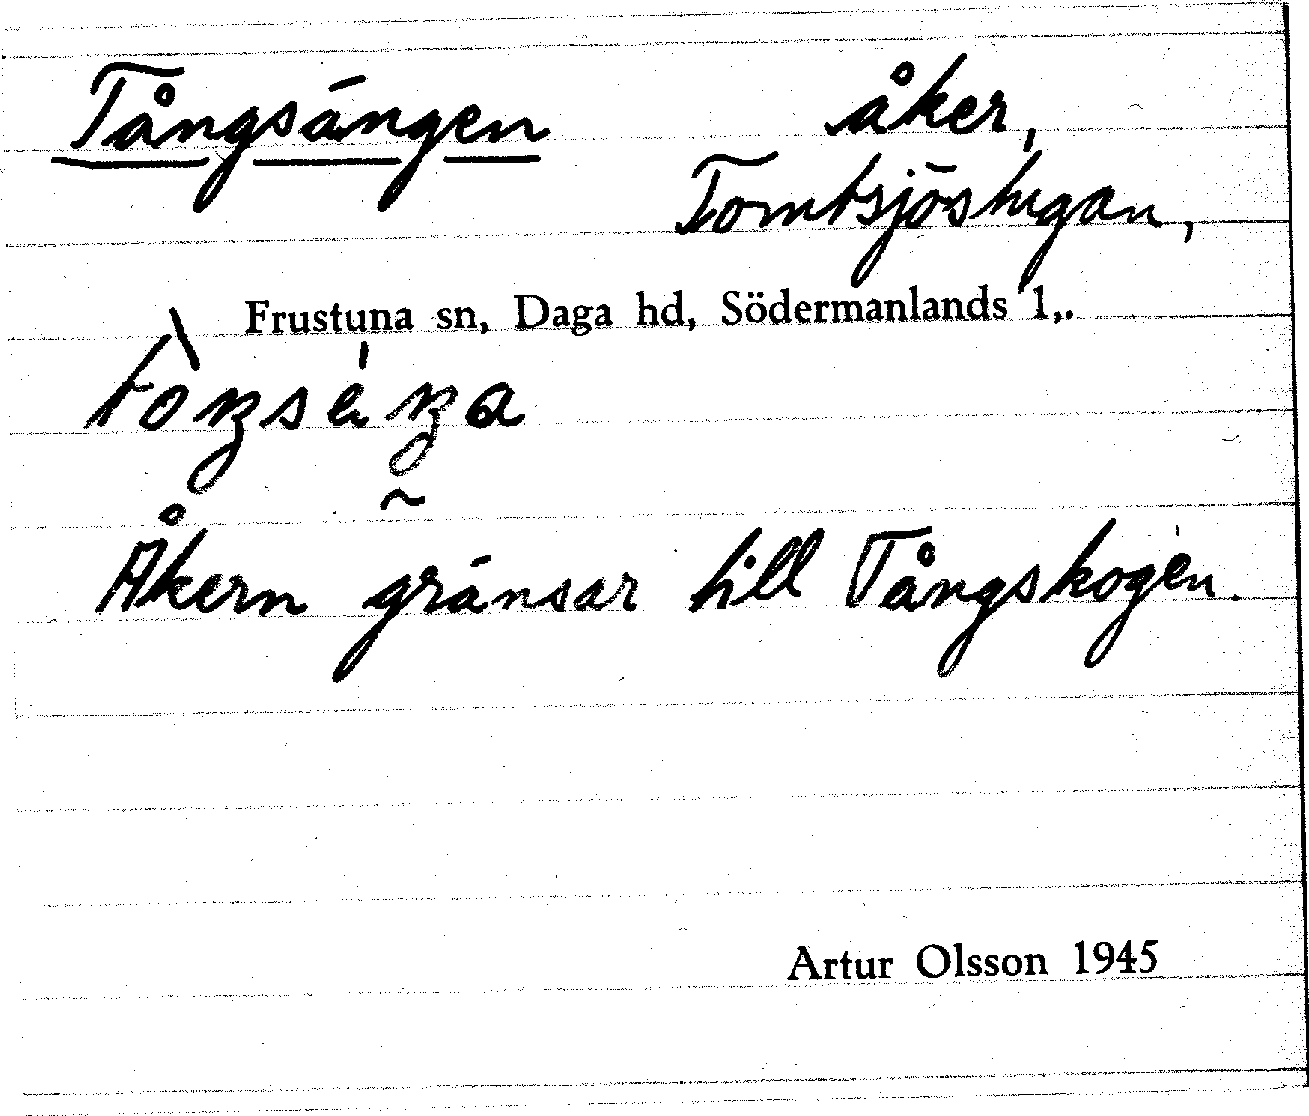 Tångsängen åker,
Tomtsjöstugan,
Frustuna sn, Daga hd, Södermanlands l,.
Åkern gränsar till Tångskogen.
Artur Olsson 1945